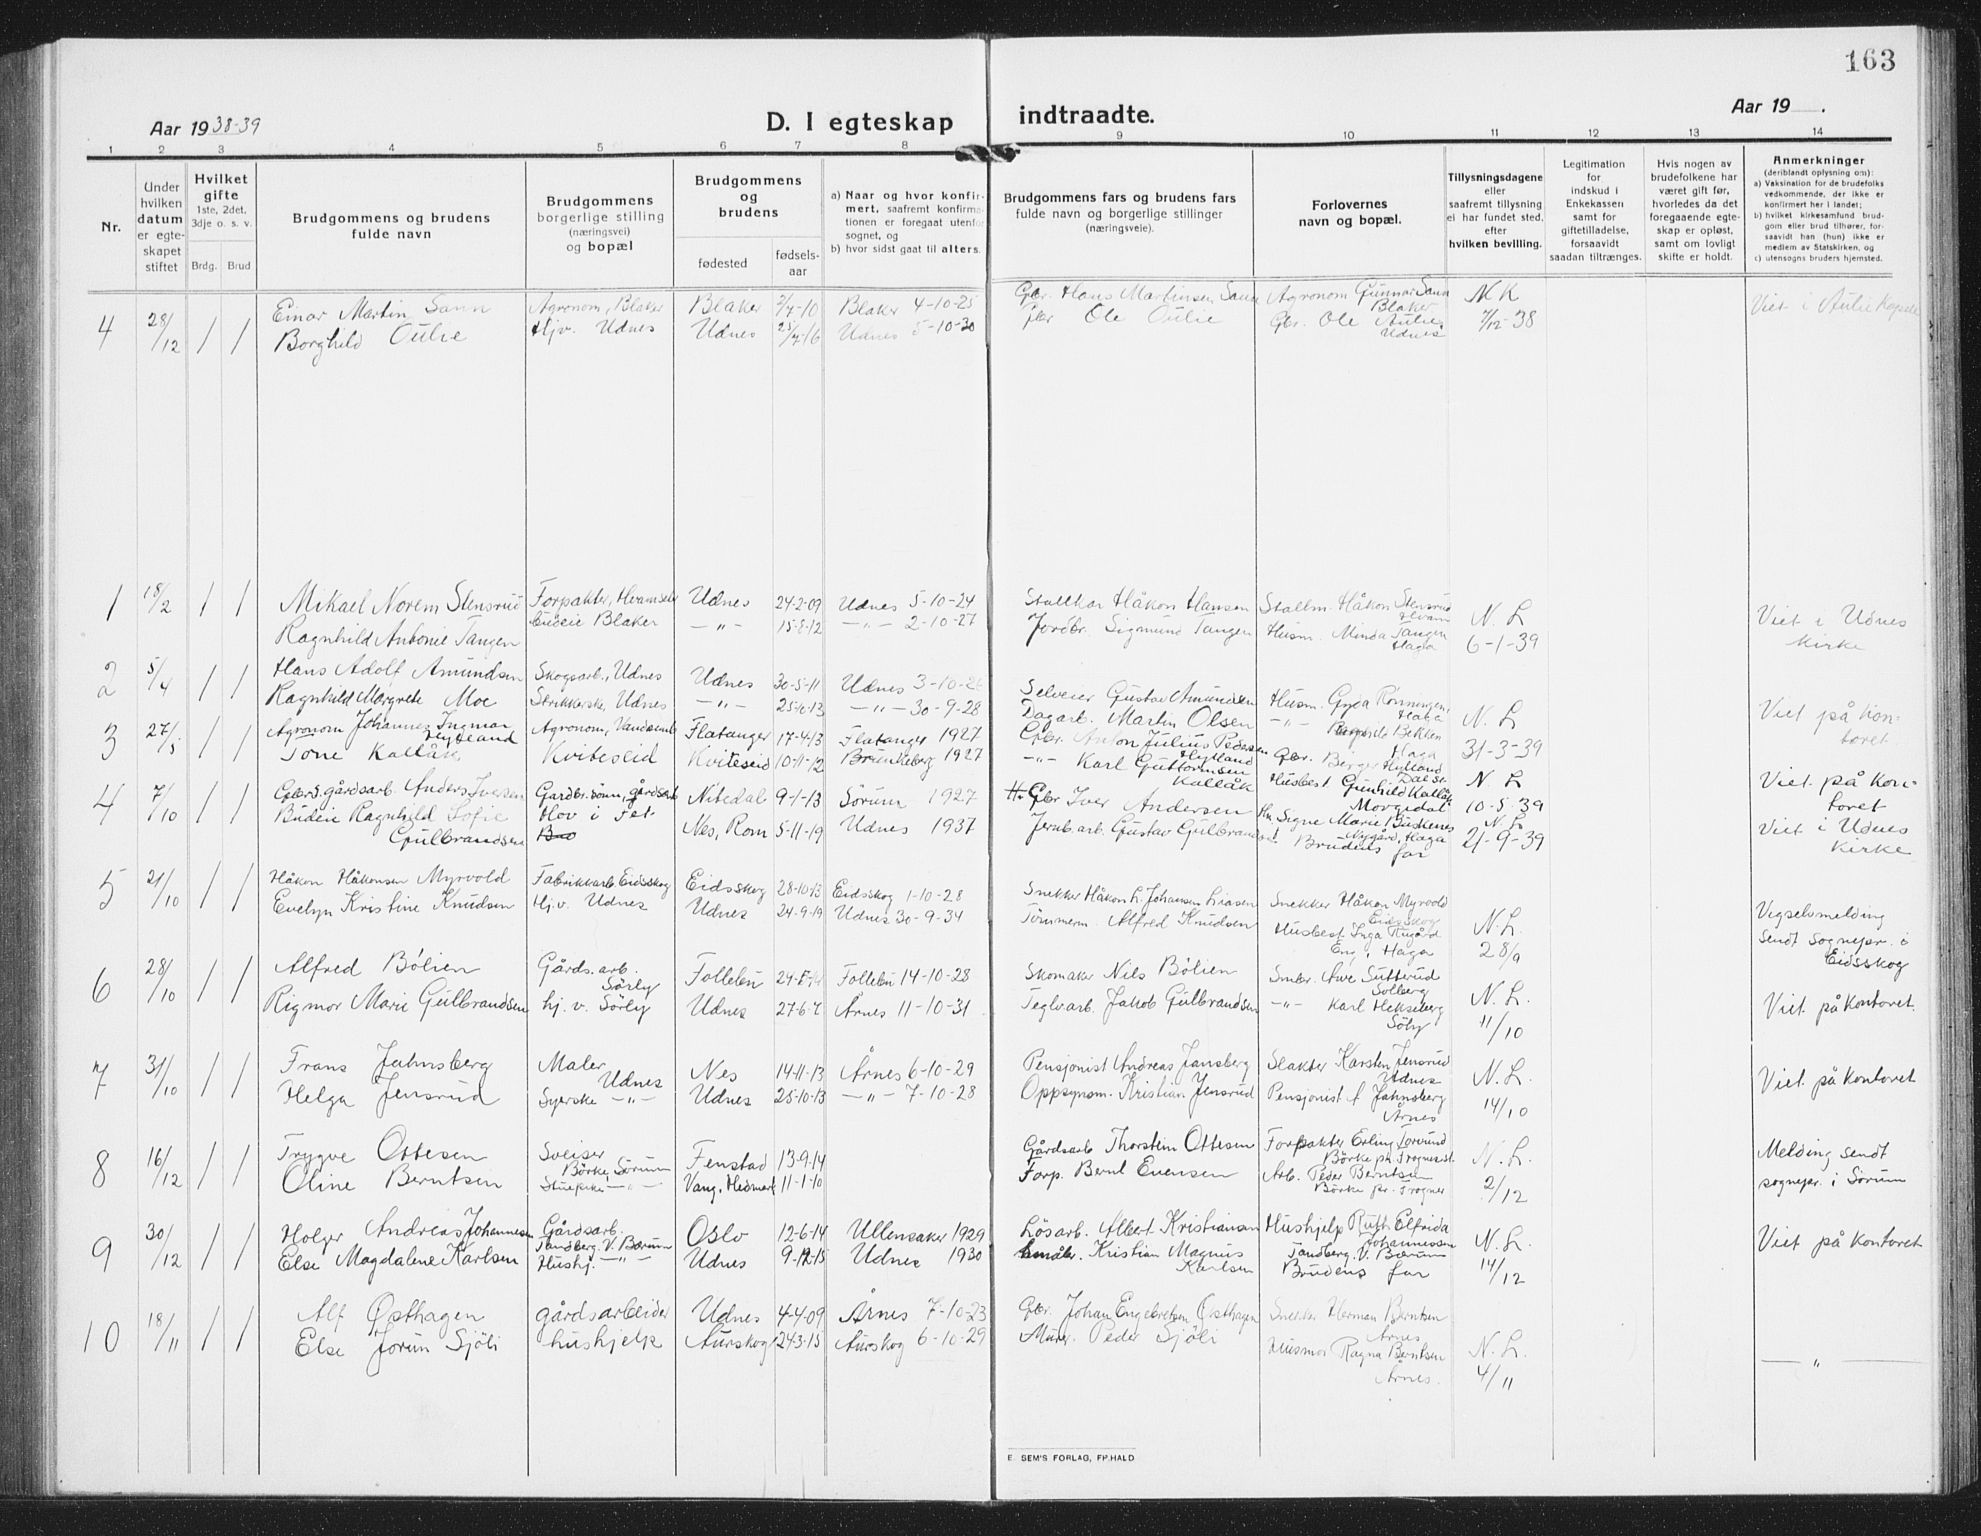 163
Aar 1938-39
D. I egteskap indtraadte.
Aar 19   .
1 2 3 4 5 6 7 8 9 10 11 12 13 14
Nr.
Under
hvilken
datum
er egte-
skapet
stiftet
Hvilket
gifte
1ste, 2det,
3dje o. s. v.
Brdg. Brud
Brudgommens og brudens
fulde navn
Brudgommens
borgerlige stilling
(næringsvei)
og bopæl
Brudgommens
og
brudens
fødested
fødsels-
aar
a) Naar og hvor konfir-
mert, saafremt konfirma-
tionen er foregaat utenfor
sognet, og
b) hvor sidst gaat til alters.
Brudgommens fars og brudens fars
fulde navn og borgerlige stillinger
(næringsveie).
Forlovernes
navn og bopæl.
Tillysningsdagene
eller
saafremt tillysning
ei har fundet sted,
efter
hvilken bevilling.
Legitimation
for
indskud i
Enkekassen
samt for
giftetilladelse,
forsaavidt
saadan tiltrænges.
Hvis nogen av
brudefolkene har
været gift før,
hvorledes da det
foregaaende egte-
skap er opløst,
samt om lovligt
skifte er holdt.
Anmerkninger
(deriblandt oplysning om):
a) Vaksination for de brudefolks
vedkommende, der ikke er
konfirmert her i landet;
b) hvilket kirkesamfund brud-
gom eller brud tilhører, for-
saavidt han (hun) ikke er
medlem av Statskirken, og
c) utensogns bruders hjemsted.
4 28/12 1 1 Einar Martin Sann Agronom, Blaker Blaker 2/7-10 Blaker 4-10-25 Gbr. Hans Martinsen Sann Agronom Gunnar Sann Blaker NK Viet i Aulie kapell
Borghild Oulie Hjv. Udnes Udnes 25/7-16 Udnes 5-10-30 Gbr Ole Oulie Gbr. Ole Aulie Udnes 7/12-38
1 18/2 1 1 Mikael Norem Stensrud Forpakter, Udnes 24-2-09 Udnes 5-10-24 Håkon Hansen Stallm. Håkon Stensrud Hvam N. L. Viet i Udnes
Ragnhild Antonie Tangen Budeie Blaker -"- 15-8-12 -"- 2-10-27 Jordbr. Sigmund Tangen Husm. Minda Tangen Haga 6-1-39 kirke
2 5/4 1 1 Hans Adolf Amundsen Skogsarb., Udnes Udnes 30-5-11 Udnes 3-10-26 Selveier Gustav Amundsen Husm. Gyda Rønningen, Haga N. L Viet på kon-
Ragnhild Margrete Moe Strikkerske, Udnes -"- 25-10-13 -"- 30-9-28 Dagarb. Martin Olsen -"- Bekken Haga 31-3-39 toret
3 27/5 1 1 Agronom Johannes Ingmar Hylland Agronom, Flatanger 17-4-13 Flatanger 1927 Gbr. Anton Julius Pedersen Hylland Gbr. Birger Hylland N. L Viet på kon-
Tone Kallåk Kviteseid Kviteseid 10-11-12 Brunkeberg 1927 -"- Karl Guttormsen Kallåk Husbest. Gunhild Kallåk Morgedal 10-5-39 toret
4 7/10 1 1 gårdsarb. Anders Iversen Gardbr.sønn, gårdsarb Nitedal 9-1-13 Sørum 1927 Gbr Iver Andersen Signe Marie Buskenes Nygård, Haga N. L. Viet i Udnes
Budeie Ragnhild Sofie Gulbrandsen Hov i Fet Nes, Rom 5-11-19 Udnes 1937 Jernb.arb. Gustav Gulbrandsen Brudens far 21-9-39 kirke
5 21/10 1 1 Håkon Håkonsen Myrvold Fabrikkarb. Eidsskog Eidsskog 28-10-13 Eidsskog 1-10-28 Snekker Håkon L. Johansen Liasen Snekker Håkon Myrvold Eidsskog N. L. Vigselsmelding
Evelyn Kristine Knudsen Hj.v. Udnes Udnes 24-9-19 Udnes 30-9-34 Tømmerm. Alfred Knudsen Husbest. Inga Rugård Eng, Haga 28/9 sendt sognepr. i
Eidsskog
6 28/10 1 1 Alfred Bölien Gårds.arb. Sörly Follebu Follebu 14-10-28 Skomaker Nils Bölien Smbr. Sutterud Solberg N. L. Viet på kontoret.
Rigmor Marie Gulbrandsen hj. v. Sörly Udnes 27-6- Årnes 11-10-31 Teglv.arb. Jakob Gulbrandsen -"- Karl Hekseberg 11/10
7 31/10 1 1 Frans Jahnsberg Maler Udnes Nes 14-11-13 Årnes 6-10-29 Pensjonist Andreas Jansberg Slakter Karsten Jensrud Udnes N. L. Viet på kontoret
Helga Jensrud Syerske -"- Udnes 25-10-13 -"- 7-10-28 Oppsynsm. Kristian Jensrud Pensjonist A Jahnsberg Årnes 14/10
8 16/12 1 1 Trygve Ottesen Sveiser Börke, Sörum Fenstad 13-9-14 Gårdsarb Thorstein Ottesen Forpakter Erling Torsund Börke pr. Frogner st. N. L. Melding sendt
Oline Berntsen -"- Vang, Hedmark 11-1-10 Forp. Bernt Evensen Arb. Peder Berntsen Börke pr. Frogner 2/12 sognepr. i Sörum
9 30/12 1 1 Holger Andreas Johannesen Gårdsarb. Tandberg, V. Bærum Oslo 12-6-14 Ullensaker 1929 Lösarb. Albert Kristiansen Hushjelp Ruth Elfrida Johannessen Tandberg, V. Bærum N. L. Viet på kontoret
Else Magdalene Karlsen Hushj. -"- Udnes 9-12-15 Udnes 1930 Småbr. Kristian Magnus Karlsen Brudens far 14/12
10 18/11 1 1 Alf Østhagen gårdsarbeider Udnes 4-4-09 Årnes 7-10-23 Gbr. Johan Engebretsen Østhagen Snekker Herman Berntsen Årnes N. L. — " —
Else Jorun Sjöli hushjelp Aurskog 24-3-15 Aurskog 6-10-29 Murer Peder Sjöli Husmor Ragna Berntsen Årnes. 4/11
E. SEM'S FORLAG, FP.HALD